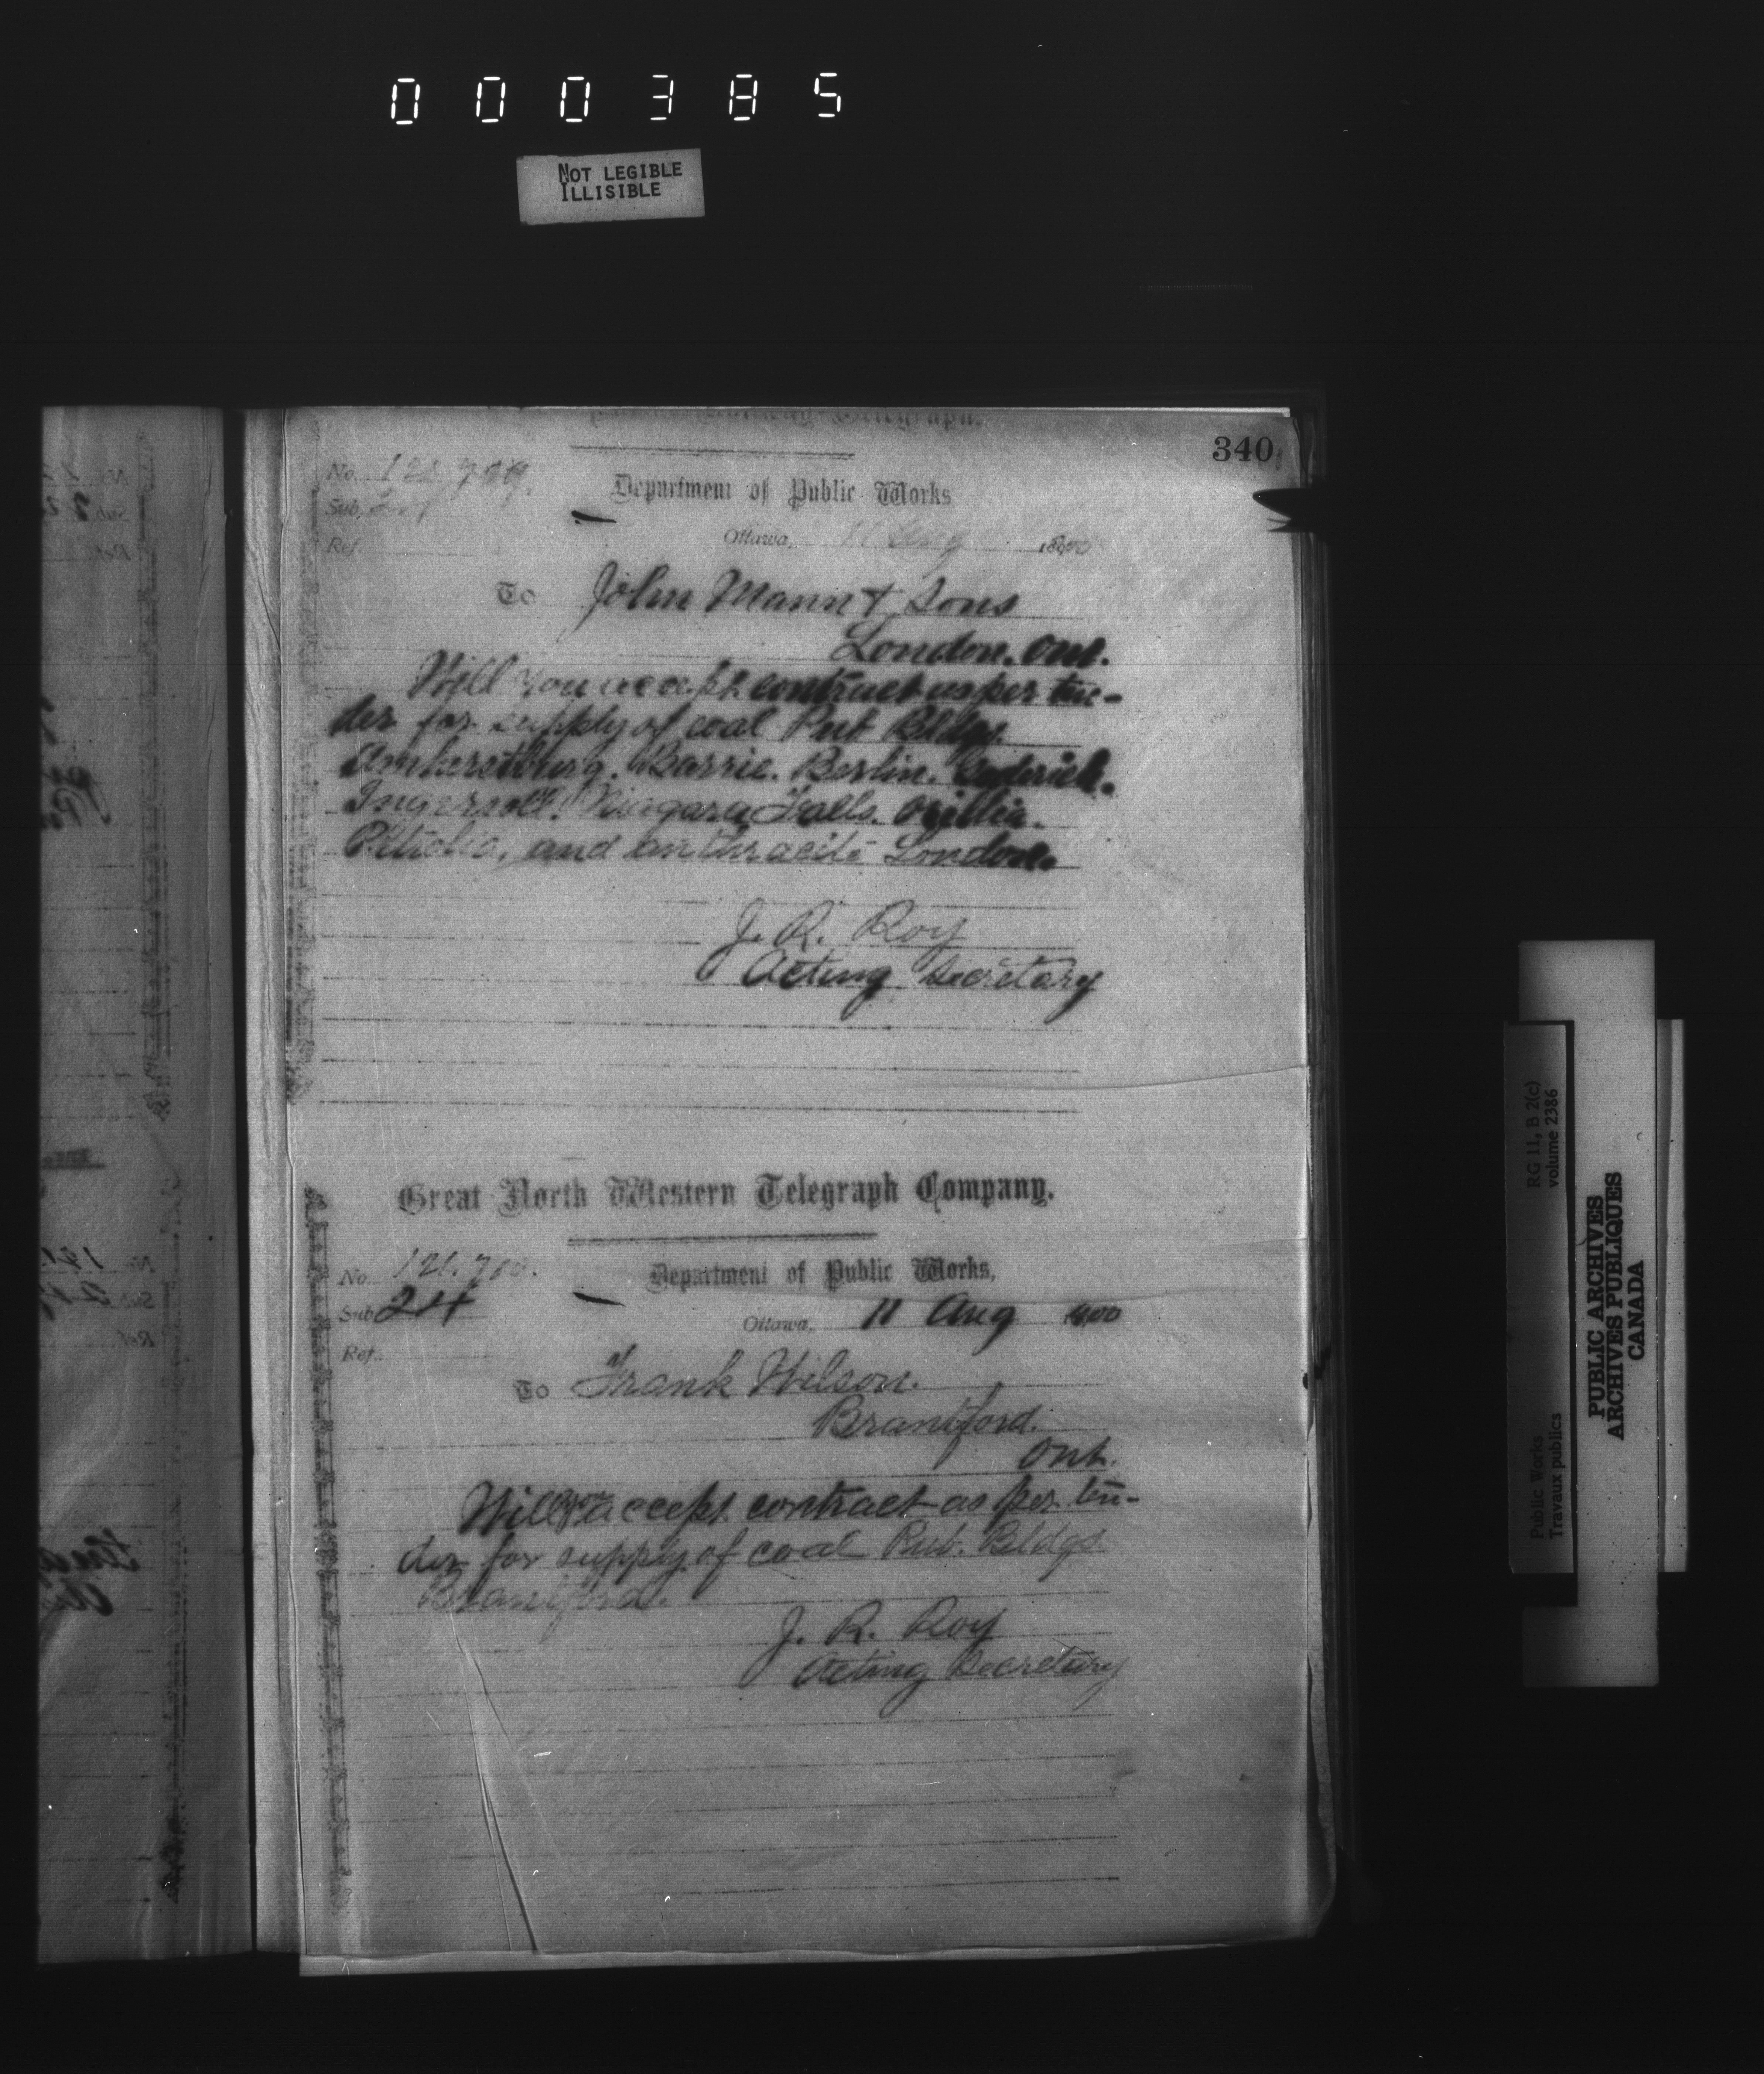 000385
NOT LEGIBLE
ILLISIBLE
340
No. 121.709.
Sub.
Ref.
Department of Public Works
Ottawa, 11 Aug
To John Mann & Sons
London. Ont.
Will you accept contract as per ten-
der for supply of coal Pub Bldgs.
Amherstburg. Barrie. Berlin. Goderich.
Ingersoll. Niagara Falls. Orillia.
Petrolia, and anthracite London.
J. R. Roy
Acting Secretary
Great North Western Telegraph Company.
No. 121.710.
Sub
Ref.
Department of Public Works,
Ottawa, 11 Aug 1900
To Frank Wilson.
Brantford.
Ont.
Will you accept contract as per ten-
der for supply of coal Pub. Bldgs
Brantford.
J. R. Roy
Acting Secretary
RG 11, B 2(c)
volume 2386
Public Works
Travaux publics
PUBLIC ARCHIVES
ARCHIVES PUBLIQUES
CANADA